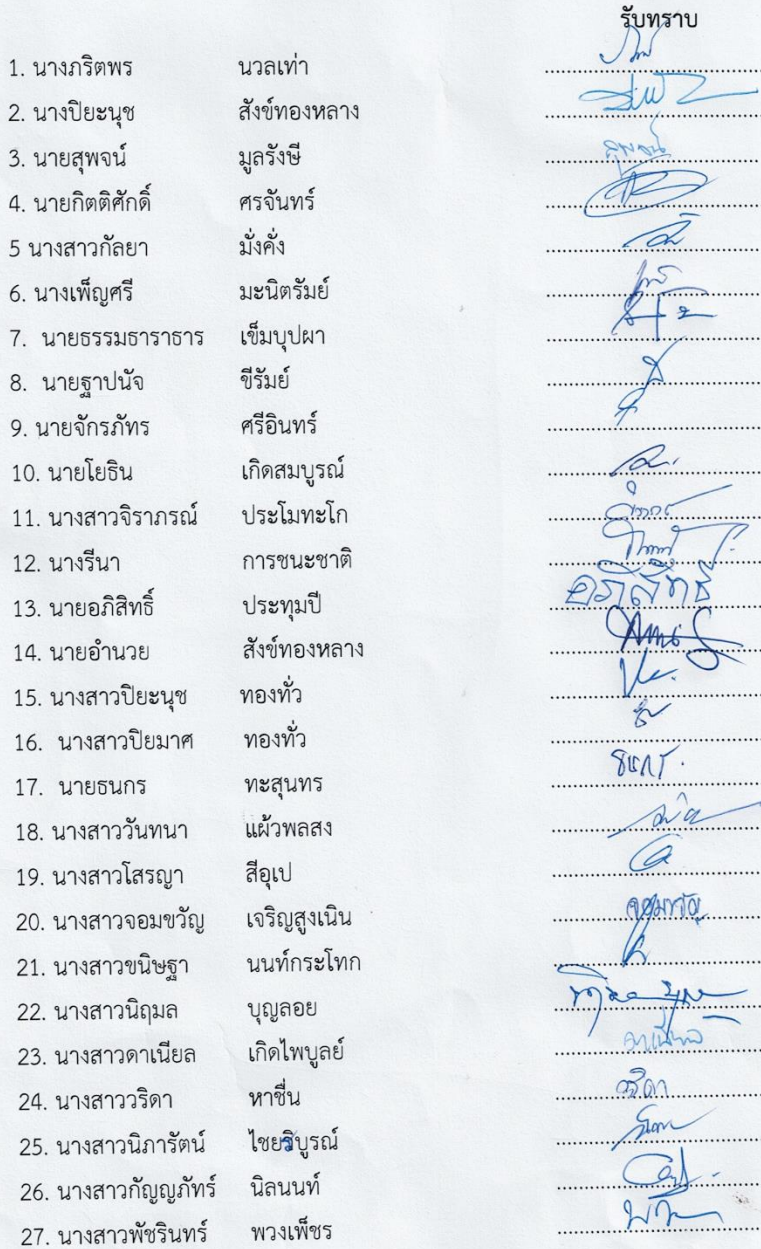 รับทราบ
1. นางภริตพร นวลเท่า
2. นางปิยะนุช สังข์ทองหลาง
3. นายสุพจน์ มูลรังษี สุพจน์
4. นายกิตติศักดิ์ ศรจันทร์
5 นางสาวกัลยา มั่งคั่ง
6. นางเพ็ญศรี มะนิตรัมย์
7. นายธรรมธาราธาร เข็มบุปผา
8. นายฐาปนัจ ขีรัมย์
9. นายจักรภัทร ศรีอินทร์
10. นายโยธิน เกิดสมบูรณ์
11. นางสาวจิราภรณ์ ประโมทะโก
12. นางรีนา การชนะชาติ
13. นายอภิสิทธิ์ ประทุมปี อภิสิทธิ์
14. นายอำนวย สังข์ทองหลาง
15. นางสาวปิยะนุช ทองทั่ว
16. นางสาวปิยมาศ ทองทั่ว
17. นายธนกร ทะสุนทร ธนกร
18. นางสาววันทนา แผ้วพลสง
19. นางสาวโสรญา สีอุเป
20. นางสาวจอมขวัญ เจริญสูงเนิน จอมขวัญ
21. นางสาวขนิษฐา นนท์กระโทก
22. นางสาวนิฤมล บุญลอย
23. นางสาวดาเนียล เกิดไพบูลย์ ดาเนียล
24. นางสาววริดา หาชื่น วริดา
25. นางสาวนิภารัตน์ ไชยริบูรณ์
26. นางสาวกัญญภัทร์ นิลนนท์
27. นางสาวพัชรินทร์ พวงเพ็ชร